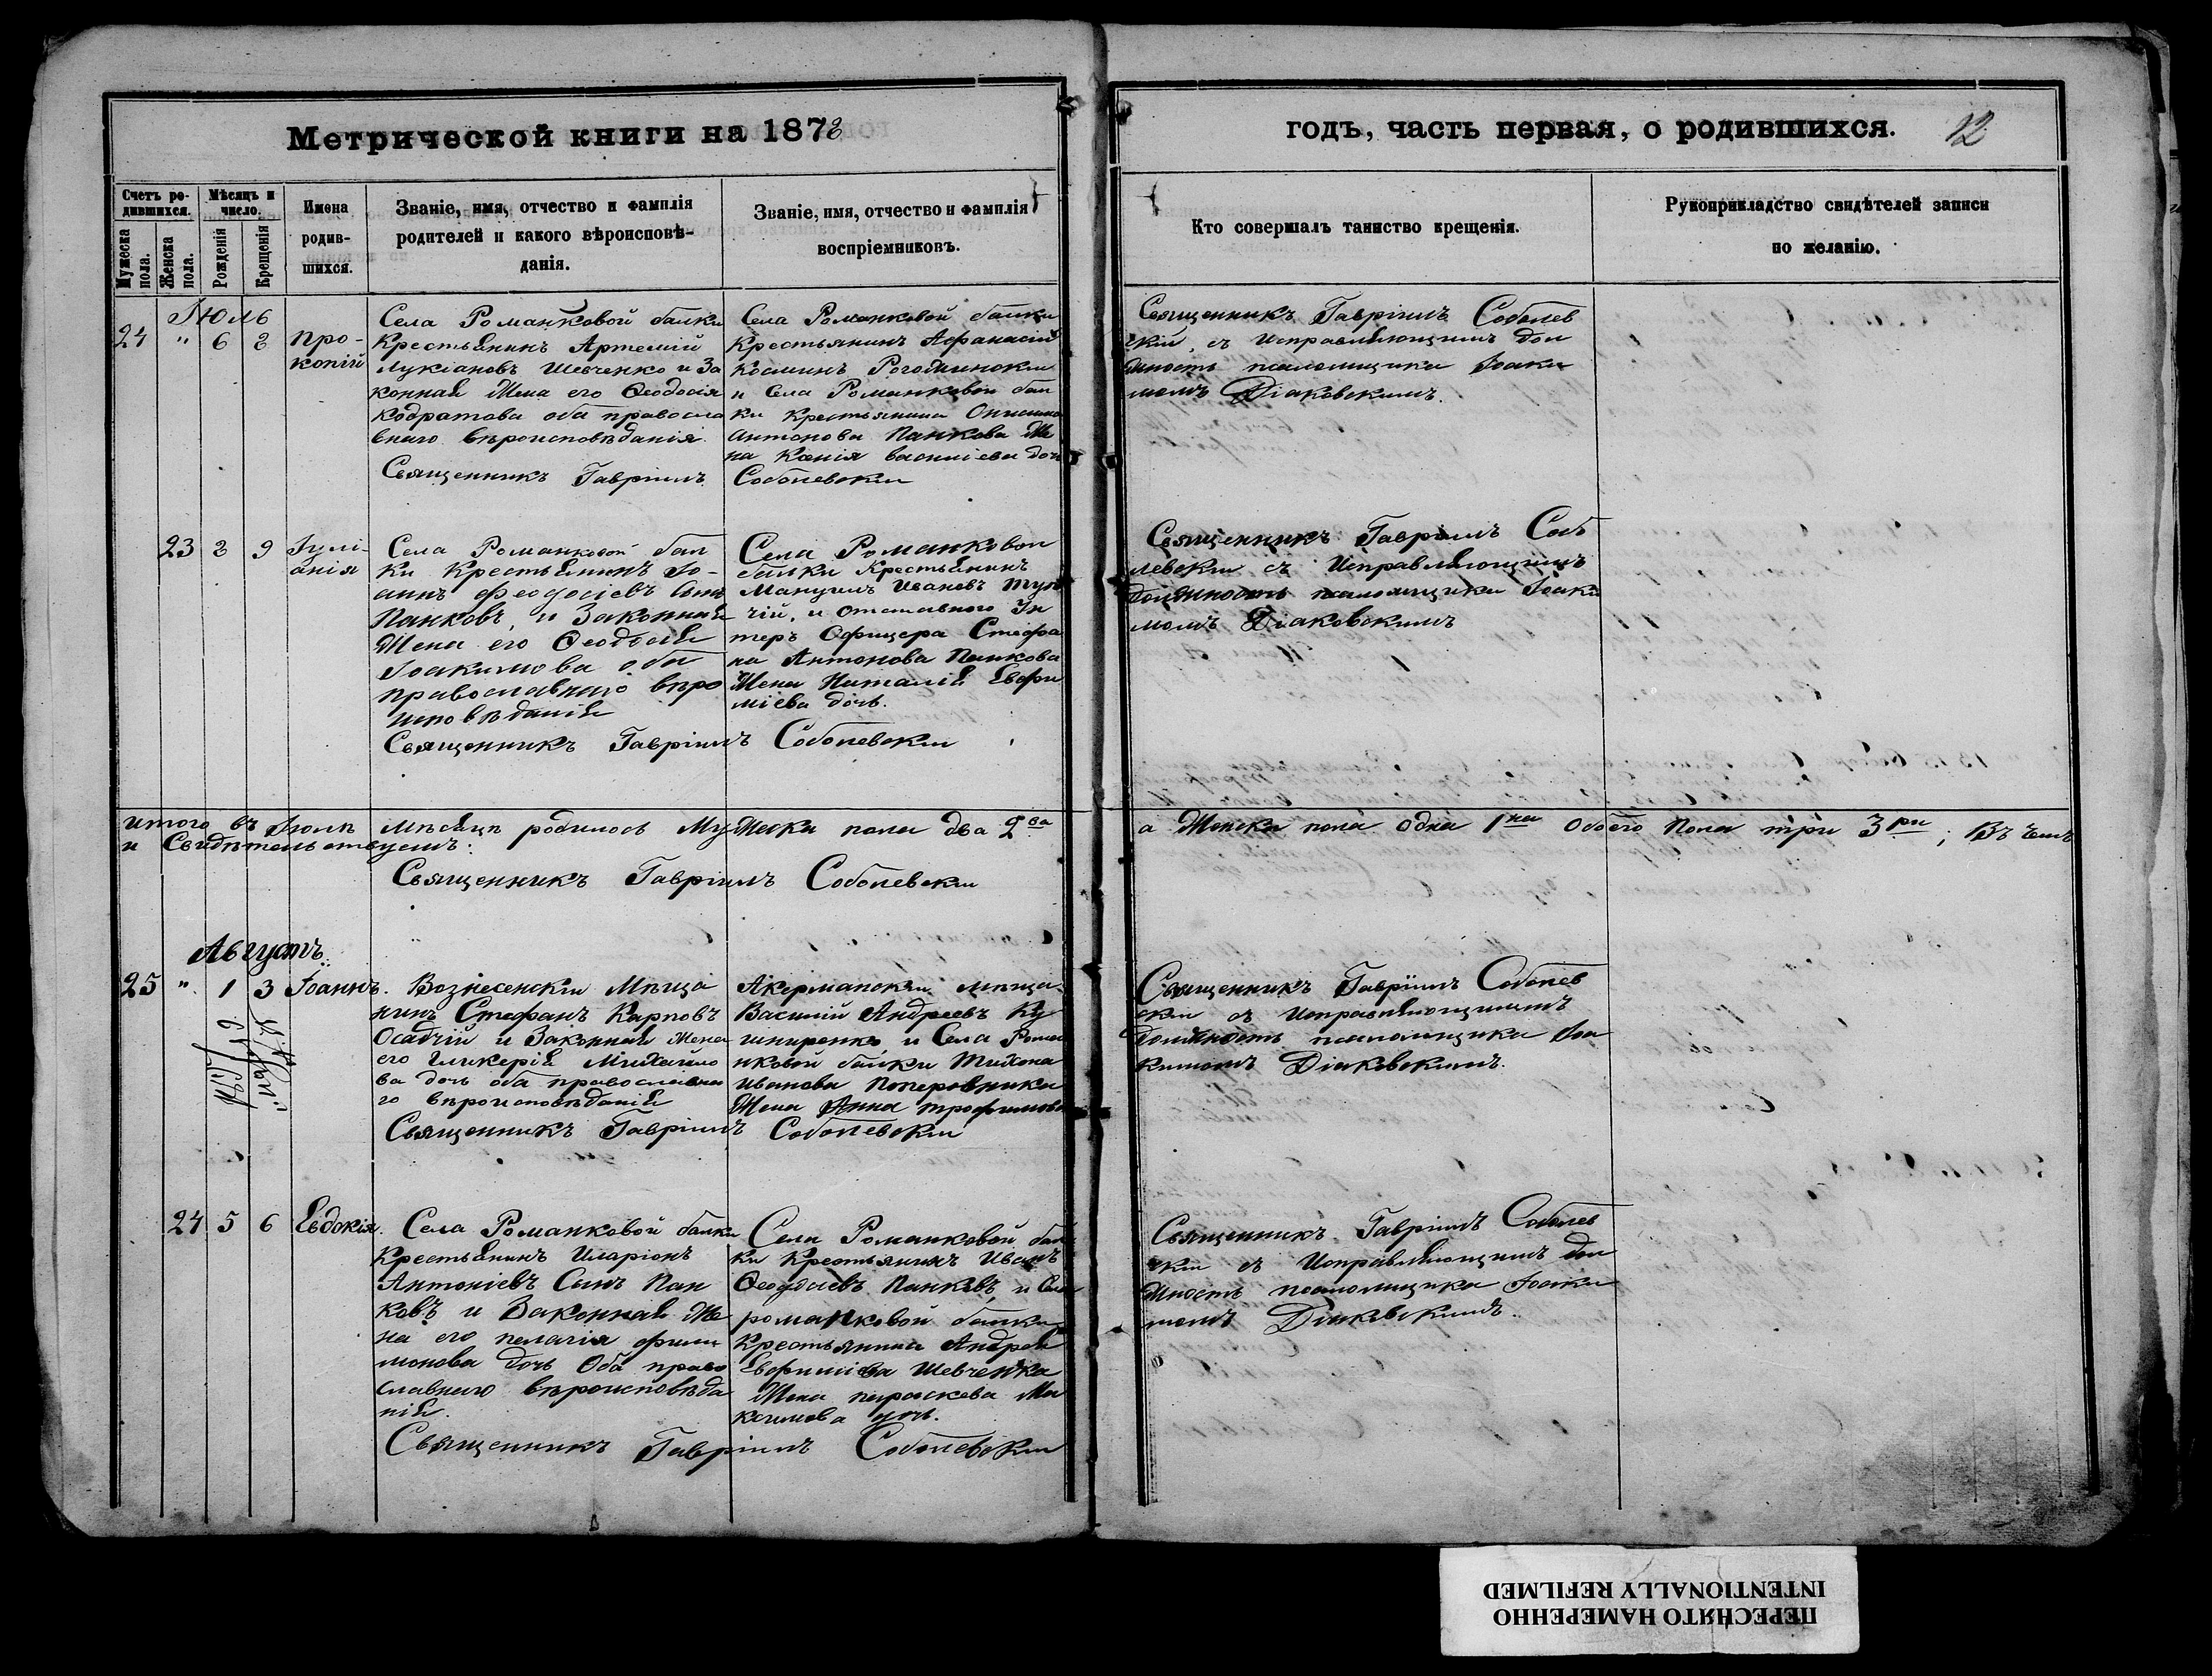 Метрической книги на 1878
годъ, часть первая, о родившихся.
12
Счетъ ро-
дившихся.
Мужеска пола.
Женска пола.
Мѣсяцъ и
число.
Рожденія
Крещенія
Имена
родив-
шихся.
Званіе, имя, отчество и фамилія
родителей и какого вѣроисповѣ-
данія.
Званіе, имя, отчество и фамилія
воспріемниковъ.
Кто совершалъ таинство крещенія.
Рукоприкладство свидѣтелей записи
по желанію.
Іюль
24 " 6 8
Про-
копій
Села Романковой балки
Крестьянинъ Артемій
Лукіановъ Шевченко и За
конная Жена его Ѳеодосія
Кодратова оба правосла
внаго вѣроисповѣданія.
Священникъ Гавріилъ Соболевскій
Села Романковой балки
Крестьянинъ Афанасій
Косминъ
и Села Романковой бал
ки Крестьянина
Антонова Панкова Же
на Ксенія Василіева дочь
Священникъ Гавріилъ Соболев
скій, съ Исправляющимъ дол
жность псаломщика Іоаки
момъ Діаковскимъ.
23 8 9
Іулі-
анія
Села Романковой бал
ки Крестьянинъ Іо-
аннъ Феодосіевъ Сынъ
Панковъ, и Законная
Жена его Ѳеодосія
Іоакимова оба
православнаго вѣро
исповѣданія
Священникъ Гавріилъ Соболевскій
Села Романковой
балки Крестьянинъ
Мануилъ Ивановъ
чій, и отставного Ун
теръ Офицера Стефа
на Антонова Панкова
Жена Наталія Евфи
міева дочь.
Священникъ Гавріилъ Соб
левскій съ Исправляющимъ
должность псаломщика Іоаки
момъ Діаковскимъ
итого въ Іюлѣ мѣсяцѣ родилось Мужеска пола два 2ва а Женска пола одна 1на Обоего Пола три 3ри; Въ чемъ
и Свидѣтельствуемъ:
Священникъ Гавріилъ Соболевскій
Августъ
25 " 1 3
Іоаннъ.
Вознесенскій Мѣща
нинъ Стефанъ Карповъ
Осадчій и Законная Жена
его Гликерія Михайло
ва дочь оба православна
го вѣроисповѣданія
Священникъ Гавріилъ Соболевскій
Акерманскій мѣща.
Василій Андреевъ Ку
шниренко, и Села Рома
нковой балки Тихона
Иванова Поперовника
Жена Анна Трофимова
Священникъ Гавріилъ Соболев
скій съ Исправляющимъ
должность псаломщика Іоа
кимомъ Діаковскимъ.
24 5 6
Евдокія.
Села Романковой балки
Крестьянинъ Иларіонъ
Антоніевъ Сынъ Пан
ковъ и Законная Же
на его Пелагія Фили
монова дочь Оба право
славнаго вѣроисповѣда
нія.
Священникъ Гавріилъ Соболевскій
Села Романковой бал
ки Крестьянинъ Иванъ
Ѳеодосіевъ Панковъ, и Села
романковой балки
Крестьянина Андрея
Евфиміева Шевченка
Жена параскева Ма
ксимова дочь.
Священникъ Гавріилъ Соболев
скій съ Исправляющимъ дол
жность псаломщика Іоаки
момъ Діаковскимъ.
ПЕРЕСНЯТО НАМЕРЕННО
INTENTIONALLY REFILMED